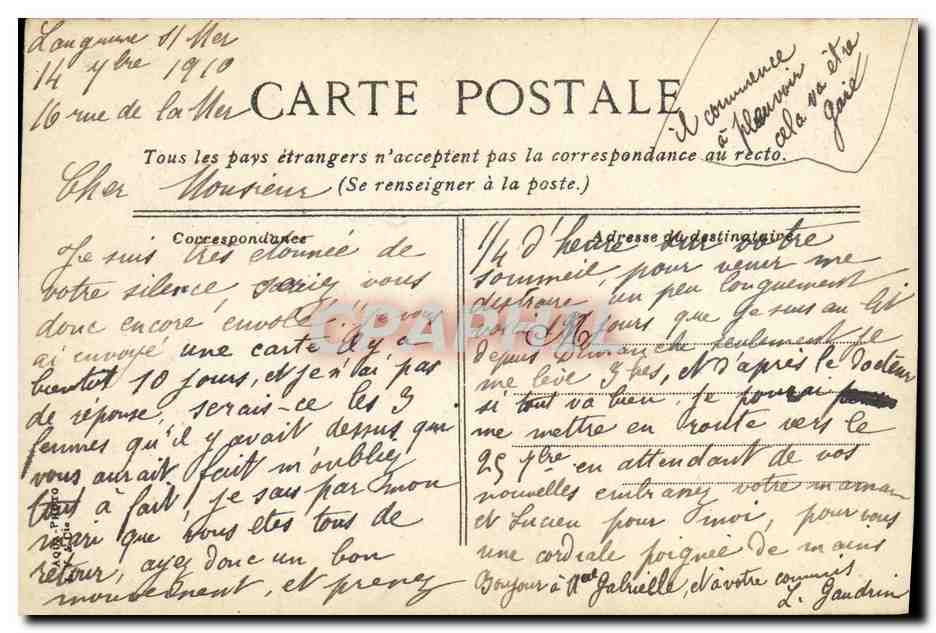 Langrune s/ Mer
14 7bre 1910
16 rue de la Mer
il commence
à pleuvoir
cela va être
gai
CARTE POSTALE
Tous les pays étrangers n'acceptent pas la correspondance au recto.
(Se renseigner à la poste.)
Cher Monsieur
Correspondance
Je suis très étonnée de
votre silence, seriez vous
donc encore envolé! je vous
ai envoyé une carte il y a
bientot 10 jours, et je n'ai pas
de réponse, serais-ce les 3
femmes qu'il y avait dessus qui
vous aurait fait m'oublier
tout à fait, je sais par mon
mari que vous etes tous de
retour, ayez donc un bon
mouvement, et prenez
Adresse du destinataire
M
1/4 d'heure sur votre
sommeil, pour venir me
distraire un peu longuement
jours que je suis au lit
depuis Dimanche seulement je
me lève 3 hes, et d'après le Docteur
si tout va bien, je pourrai
me mettre en route vers le
25 7bre en attendant de vos
nouvelles embrassez votre maman
et Lucien pour moi, pour vous
une cordiale poignée de mains
Bonjour à Melle Gabrielle, et à votre commis
L. Gaudrin
AQUA-PHOTO
& Cie
CPAPHIL